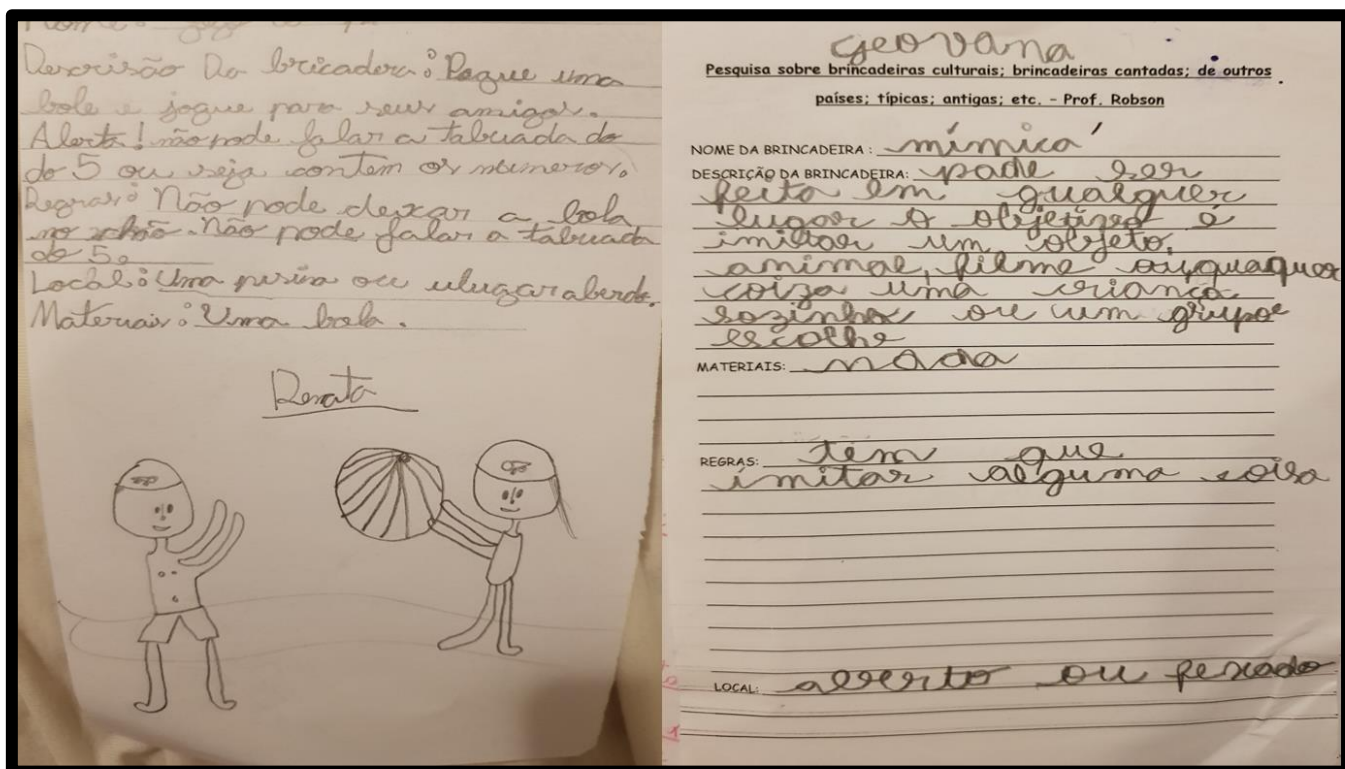 Descrisão Da bricadera: Pegue uma
bola e jogue para seus amigos.
Alerta! não pode falar a tabuada do
do 5 ou seja contem os numeros.
Regras: Não pode dexar a bola
no chão. Não pode falar a tabuada
do 5.
Local: Uma ou ulugar aberdo.
Materiais: Uma bola.
Renata
Geovana
Pesquisa sobre brincadeiras culturais; brincadeiras cantadas; de outros
países; típicas; antigas; etc. - Prof. Robson
NOME DA BRINCADEIRA: mímica
DESCRIÇÃO DA BRINCADEIRA: pode ser
feita em qualquer
lugar o objetivo é
imitar um objeto,
animal, filme ou quaquer
coiza uma criança
sozinha ou um grupo
escolhe
MATERIAIS: nada
REGRAS: tem que
imitar alguma coisa
LOCAL: aberto ou fexado